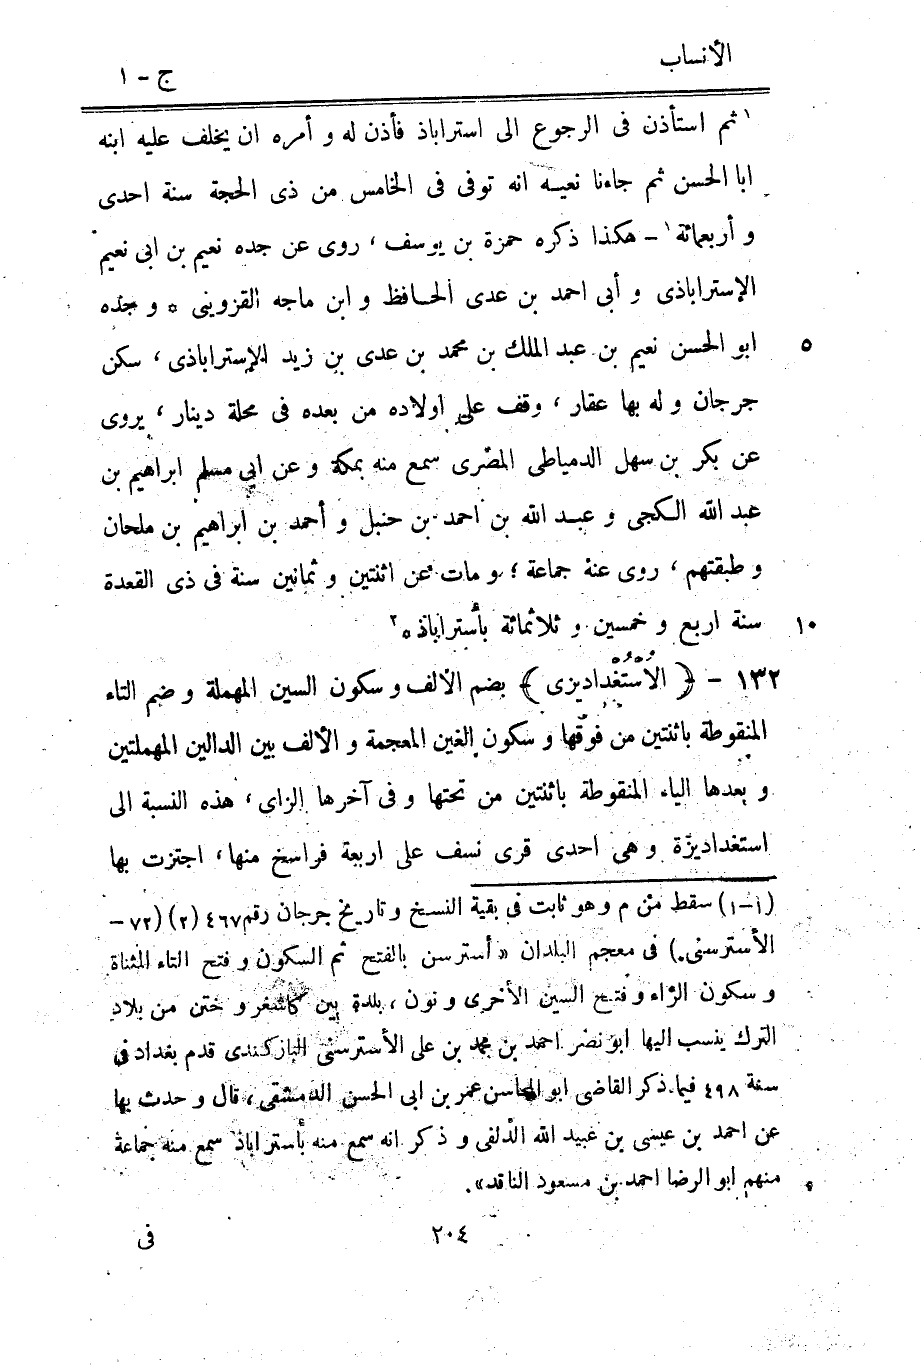 الأنساب
ج - ١
١ثم استأذن فى الرجوع الى استراباذ فأذن له و أمره ان يخلف عليه ابنه
ابا الحسن ثم جاءنا نعيه انه توفى فى الخامس من ذى الحجة سنة احدى
و أربعمائة١ - هكذا ذكره حمزة بن يوسف ، روى عن جده نعيم بن ابى نعيم
الإستراباذى و أبى احمد بن عدى الحافظ و ابن ماجه القزوينى ٥ و جده
ابو الحسن نعيم بن عبد الملك بن محمد بن عدى بن زيد الإستراباذى ، سكن ٥
جرجان و له بها عقار ، وقف على اولاده من بعده فى محلة دينار ، يروى
عن بكر بن سهل الدمياطى المصرى سمع منه بمكة و عن ابى مسلم ابراهيم بن
عبد الله الكجى و عبد الله بن احمد بن حنبل و أحمد بن ابراهيم بن ملحان
و طبقتهم ، روى عنه جماعة ؛ و مات عن اثنتين و ثمانين سنة فى ذى القعدة
سنة اربع و خمسين و ثلاثمائة بأستراباذ ٥ ٢ ١٠
١٣٢ - ﴿ الاُسْتُغْداديزى ﴾ بضم الألف و سكون السين المهملة و ضم التاء
المنقوطة باثنتين من فوقها و سكون الغين المعجمة و الألف بين الدالين المهملتين
و بعدها الياء المنقوطة باثنتين من تحتها و فى آخرها الزاى ، هذه النسبة الى
استغداديزة و هى احدى قرى نسف على اربعة فراسخ منها ، اجتزت بها
(١-١) سقط من م و هو ثابت فى بقية النسخ و تاريخ جرجان رقم ٤٦٧ (٢) (٧٢ -
الأسترسنى ) فى معجم البلدان « أسترسن بالفتح ثم السكون و فتح التاء المثناة
و سكون الراء و فتح السين الأخرى و نون ، بلدة بين كاشغر و ختن من بلاد
الترك ينسب اليها ابو نصر احمد بن محمد بن على الأسترسنى البازكندى قدم بغداد فى
سنة ٤٩٨ فيما ذكر القاضى ابو المحاسن عمر بن ابى الحسن الدمشقى ، قال و حدث بها
عن احمد بن عيسى بن عبيد الله الدلفى و ذكر انه سمع منه بأستراباذ سمع منه جماعة
منهم ابو الرضا احمد بن مسعود الناقد».
٢٠٤
فى